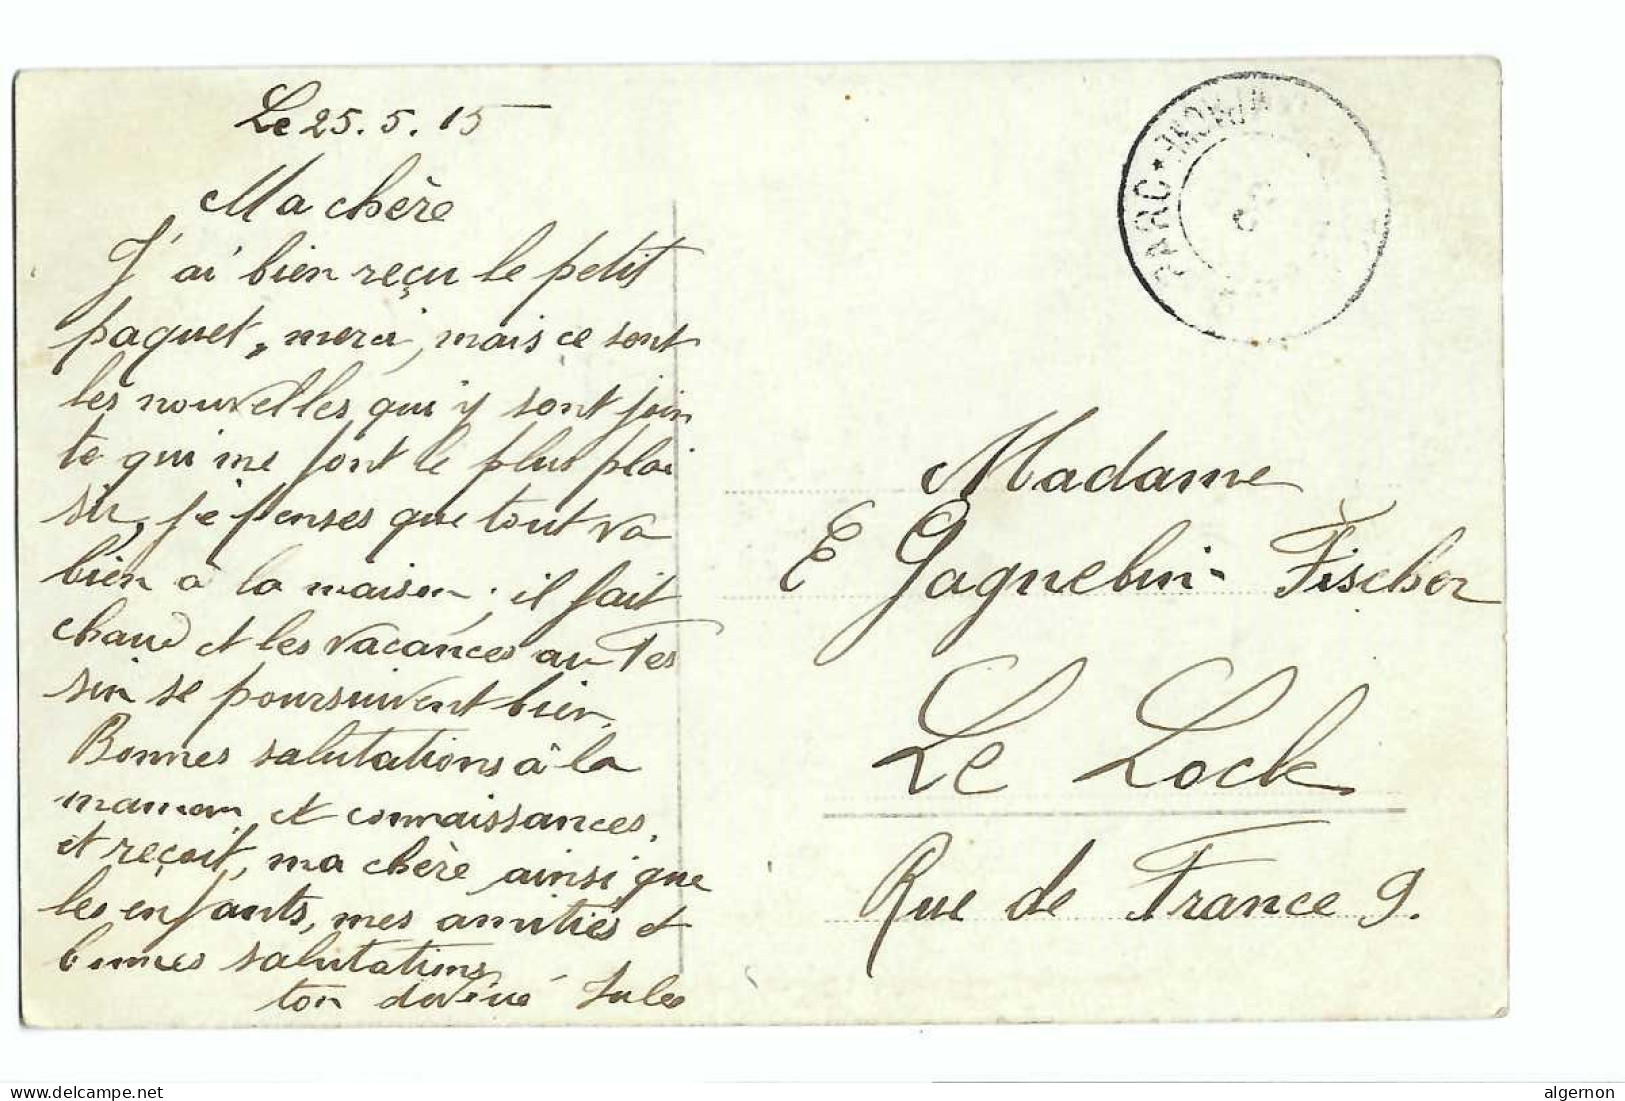 Le 25.5.15
Ma chère
J'ai bien reçu le petit
paquet, merci, mais ce sont
les nouvelles qui y sont join
te qui me font le plus plai
sir, je penses que tout va
bien à la maison; il fait
chaud et les vacances au Tes
sin se poursuivent bien.
Bonnes salutations à la
maman et connaissances.
et reçoit, ma chère ainsi que
les enfants, mes amitiés et
bonnes salutations
ton dévoué Jules
PARC *
Madame
E Gagnebin-Fischer
Le Lock
Rue de France 9.
algernon